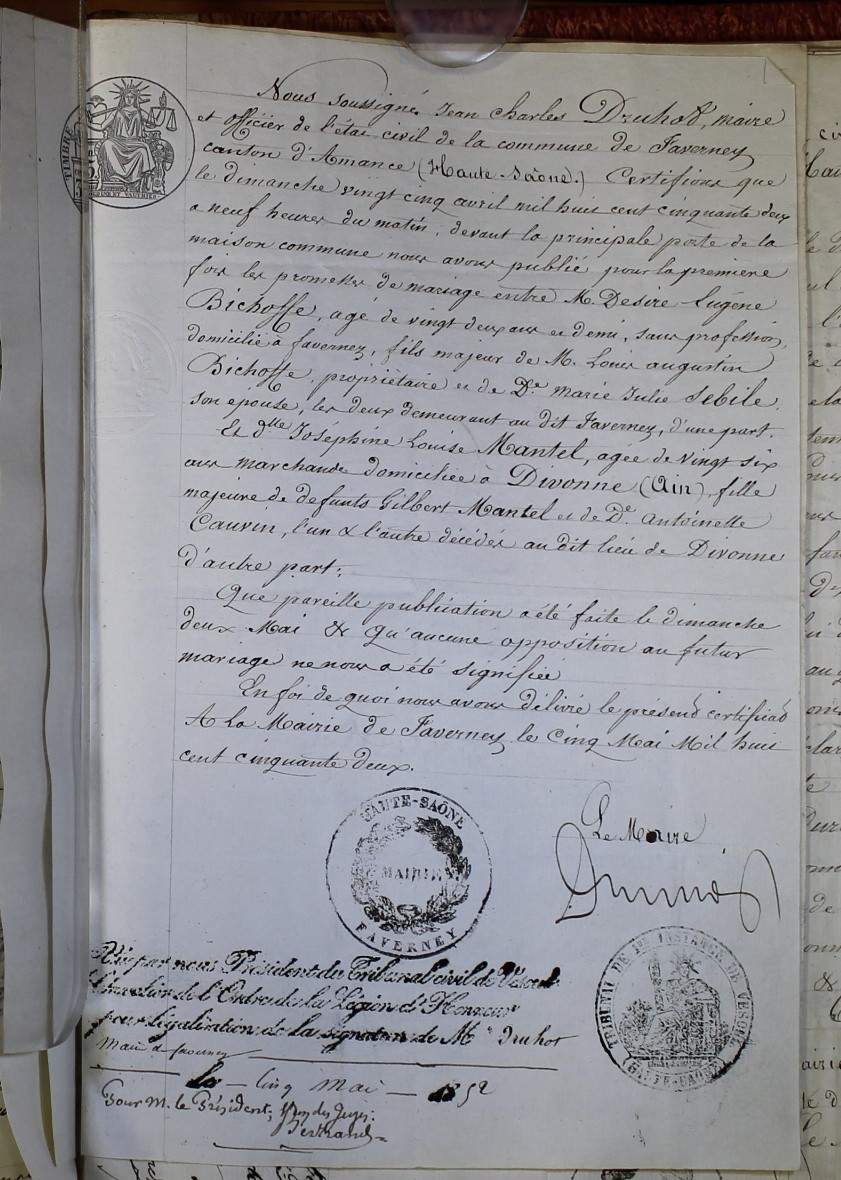 TIMBRE
Nous soussigné, Jean Charles Druhot, maire
et officier de l'état civil de la commune de Faverney
canton d'Amance (Haute-Saône.) Certifions que
le dimanche vingt cinq avril mil huit cent cinquante deux
a neuf heures du matin, devant la principale porte de la
maison commune nous avons publié pour la première
fois les promesses de mariage entre M. Desire-Eugène
Bichoffe, agé de vingt deux ans et demi, sans profession,
domicilié à faverney, fils majeur de M. Louis augustin
Bichoffe, propriètaire et de De. Marie Julie Sebile,
son epouse, les deux demeurant au dit Faverney, d'une part.
Et dlle Joséphine Louise Mantel, agée de vingt six
ans marchande domiciliée à Divonne (Ain), fille
majeure de defunts Gilbert Mantel et de De. Antoinette
Cauvin, l'un & l'autre décédés au dit lieu de Divonne
d'autre part;
Que pareille publication a été faite le dimanche
deux Mai & qu'aucune opposition au futur
mariage ne nous a été signifiée
En foi de quoi nous avons délivré le présend certificad
A la Mairie de Faverney le cinq Mai Mil huit
cent cinquante deux.
HAUTE-SAÔNE
MAIRIE
FAVERNEY
Le Maire
Druhot
TRIBUNAL DE 1re INSTANCE DE VESOUL
(HAUTE-SAONE)
Vu par nous Président du Tribunal civil de Vesoul
de l'Ordre de la Légion d'Honneur
pour légalisation de la signature de Mr Druhot
Maire de faverney
Le cinq mai 1852
Pour M. le Président, l'un des Juges.
Bertrand